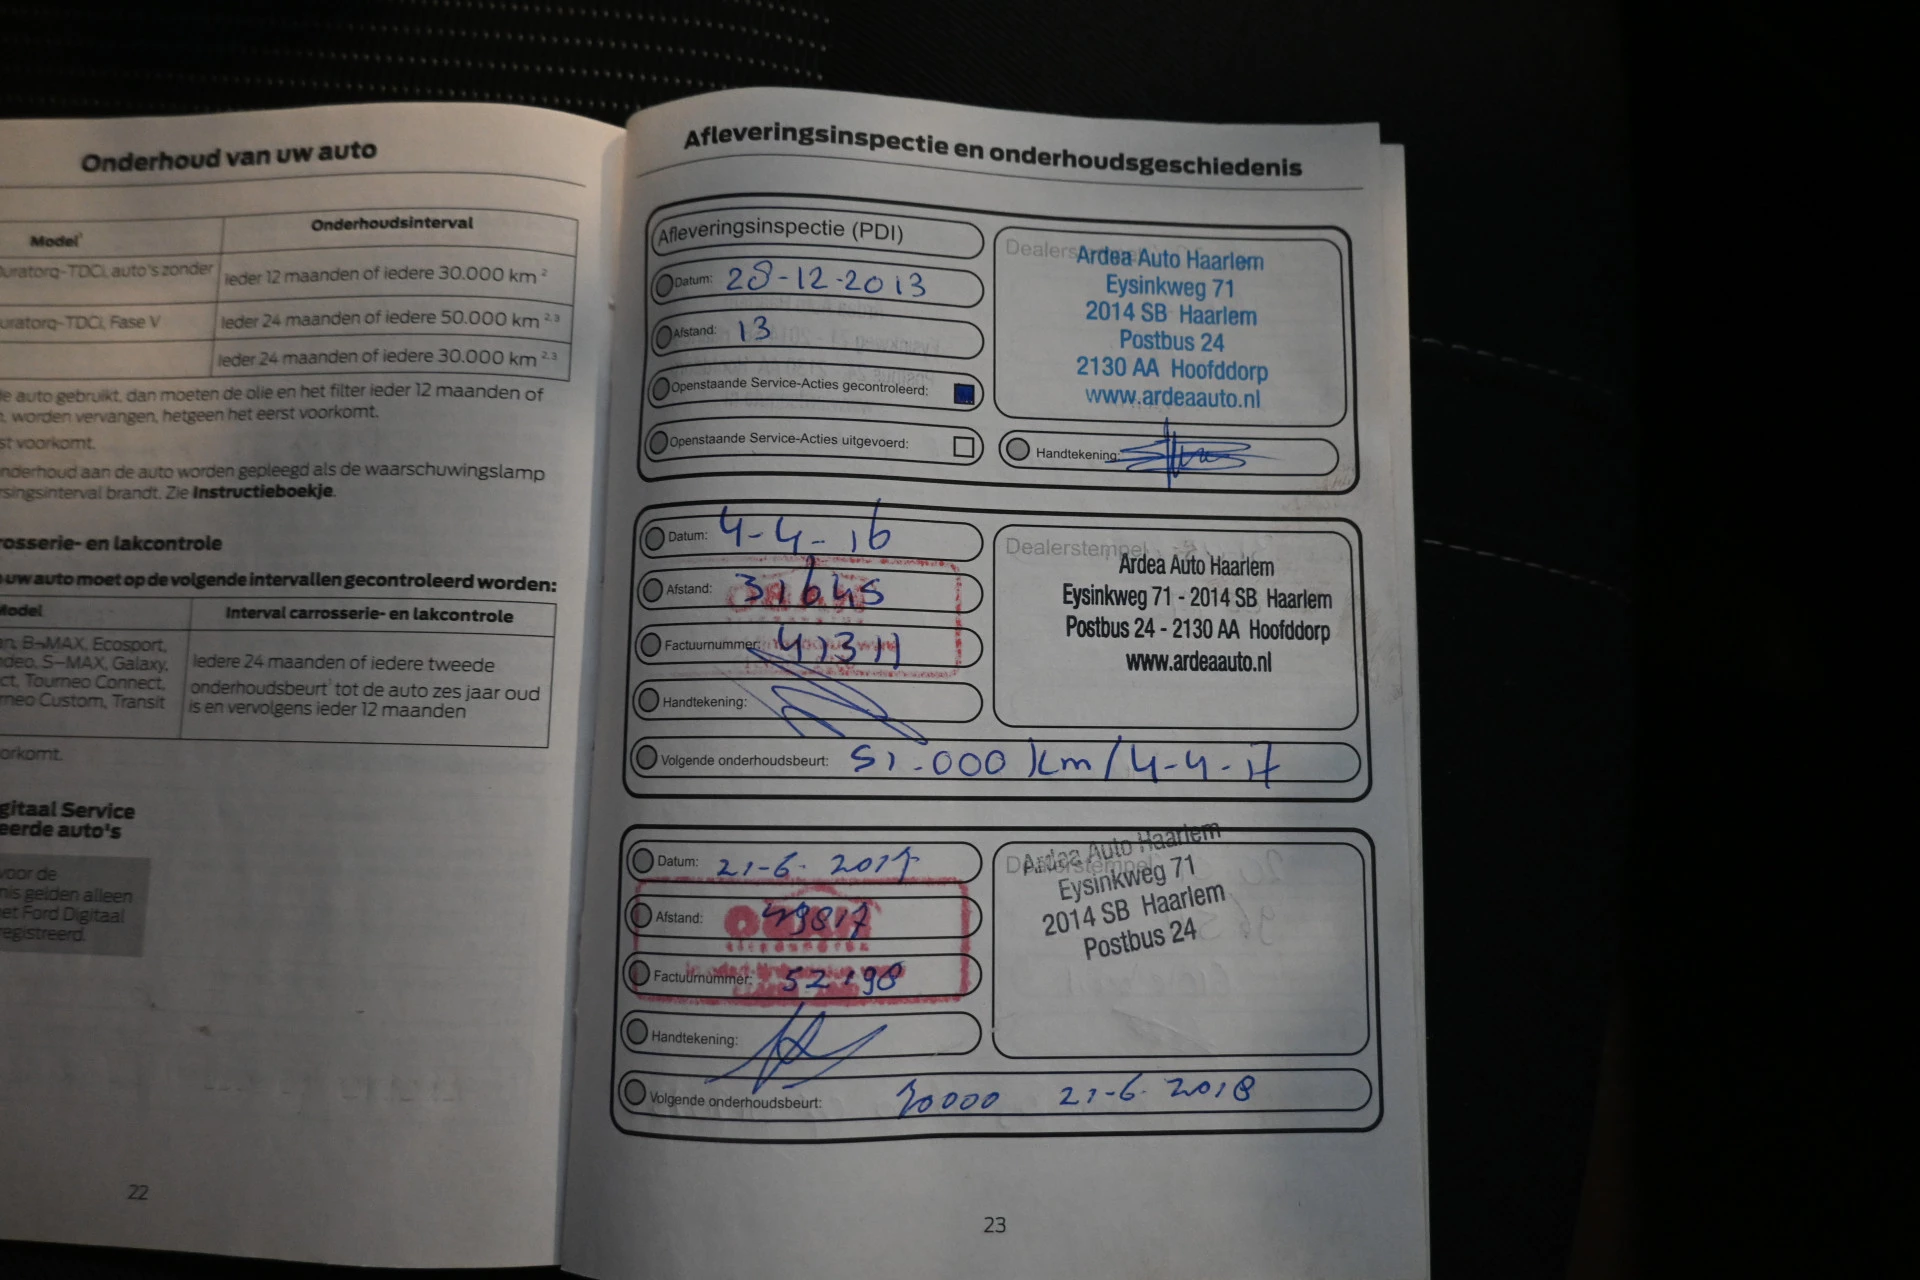 Onderhoud van uw auto
Model¹
Onderhoudsinterval
Duratorq-TDCi, auto's zonder
Ieder 12 maanden of iedere 30.000 km ²
uratorq-TDCi, Fase V
Ieder 24 maanden of iedere 50.000 km ²,³
Ieder 24 maanden of iedere 30.000 km ²,³
auto gebruikt, dan moeten de olie en het filter ieder 12 maanden of
worden vervangen, hetgeen het eerst voorkomt.
st voorkomt.
nderhoud aan de auto worden gepleegd als de waarschuwingslamp
rsingsinterval brandt. Zie Instructieboekje.
rosserie- en lakcontrole
uw auto moet op de volgende intervallen gecontroleerd worden:
Model
Interval carrosserie- en lakcontrole
n, B-MAX, Ecosport,
deo, S-MAX, Galaxy,
ct, Tourneo Connect,
rneo Custom, Transit
Iedere 24 maanden of iedere tweede
onderhoudsbeurt¹ tot de auto zes jaar oud
is en vervolgens ieder 12 maanden
orkomt.
gitaal Service
eerde auto's
voor de
nis gelden alleen
et Ford Digitaal
egistreerd.
22
Afleveringsinspectie en onderhoudsgeschiedenis
Afleveringsinspectie (PDI)
Datum: 28-12-2013
Afstand: 13
Openstaande Service-Acties gecontroleerd:
Openstaande Service-Acties uitgevoerd:
Ardea Auto Haarlem
Eysinkweg 71
2014 SB Haarlem
Postbus 24
2130 AA Hoofddorp
www.ardeaauto.nl
Handtekening:
Datum: 4-4-16
Afstand: 31645
Factuurnummer: 41311
Handtekening:
Dealerstempel
Ardea Auto Haarlem
Eysinkweg 71 - 2014 SB Haarlem
Postbus 24 - 2130 AA Hoofddorp
www.ardeaauto.nl
Volgende onderhoudsbeurt: 51.000 km / 4-4-17
Datum: 21-6-2017
Afstand: 49817
Factuurnummer: 52198
Handtekening:
Dealerstempel
Ardea Auto Haarlem
Eysinkweg 71
2014 SB Haarlem
Postbus 24
Volgende onderhoudsbeurt: 70000 21-6-2018
23